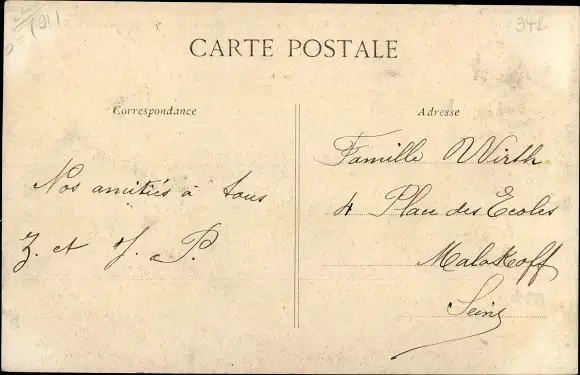 (91)
942
CARTE POSTALE
Correspondance
Adresse
Nos amitiés à tous
Z. et J. P.
Famille Wirth
4 Place des Ecoles
Malakoff
Seine